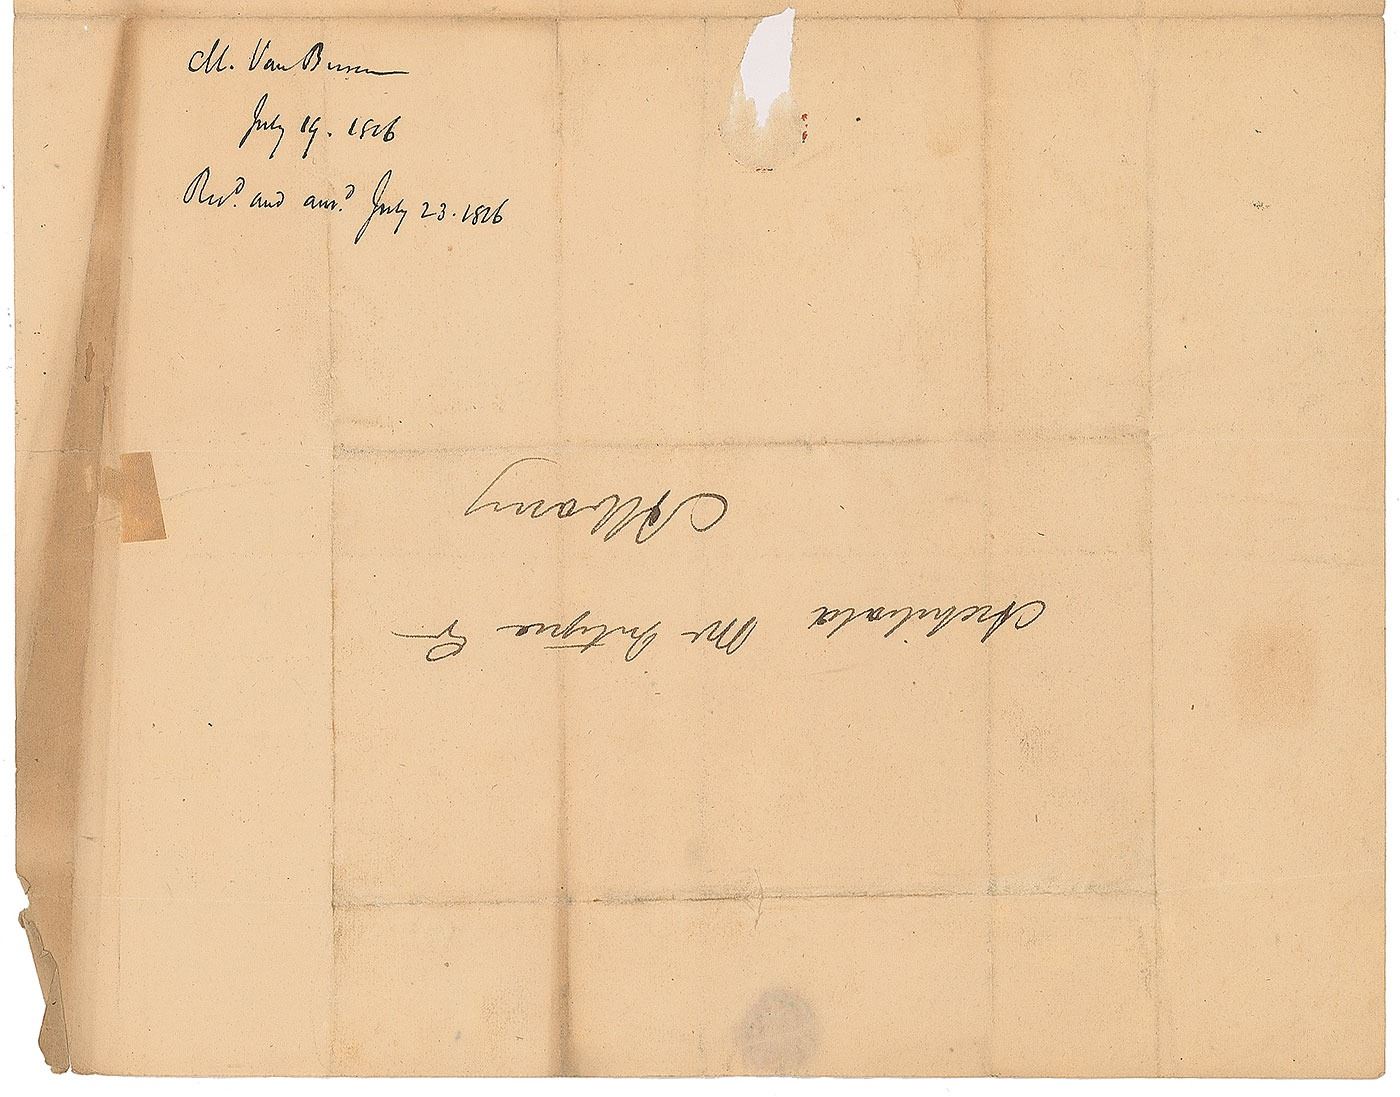 M. Van Buren
July 19. 1826
Recd. and ansd. July 23. 1826
Archibald McIntyre Esqr
Albany